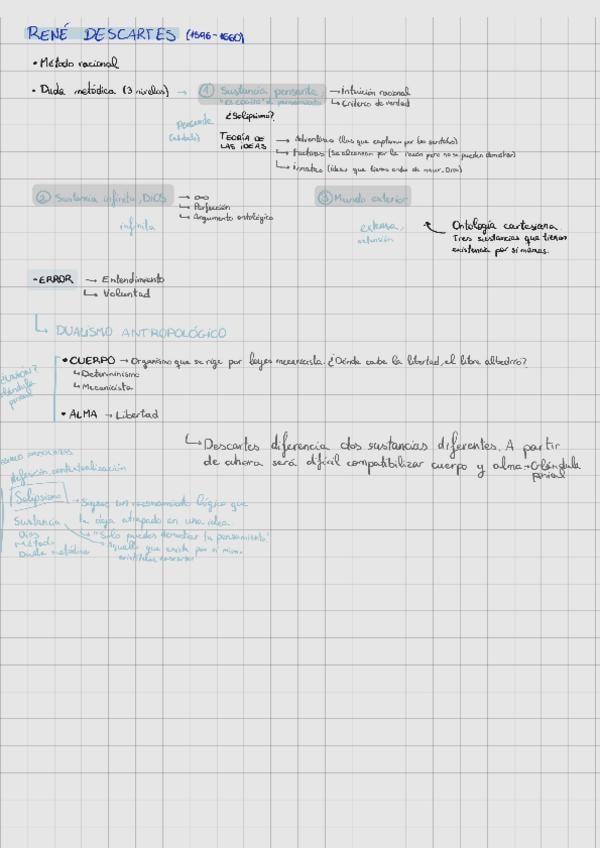 RENÉ DESCARTES (1596-1650)
• Método racional
• Duda metódica (3 niveles) → ① Sustancia pensante → Intuición racional
"res cogitans" el pensamiento ↳ Criterio de verdad
¿Solipsismo?
pensante
TEORÍA DE LAS IDEAS → Adventicias (las que captamos por los sentidos)
↳ Facticias (Se alcanzan por la razón pero no se pueden demostrar)
↳ innatas (ideas que tienes antes de nacer, Dios)
② Sustancia infinita, DIOS → ∞
↳ Perfección
↳ Argumento ontológico
infinita
③ Mundo exterior
extensa,
extensión
Ontología cartesiana.
Tres sustancias que tienen
existencia por sí mismas.
- ERROR → Entendimiento
↳ Voluntad
↳ DUALISMO ANTROPOLÓGICO
• CUERPO → Organismo que se rige por leyes mecanicista. ¿Dónde cabe la libertad, el libre albedrío?
↳ Determinismo
↳ Mecanicista
glándula
pineal
• ALMA → Libertad
↳ Descartes diferencia dos sustancias diferentes. A partir
de ahora será difícil compatibilizar cuerpo y alma → Glándula
pineal
definición, contextualización
Solipsismo → Sigues un razonamiento lógico que
te deja atrapado en una idea.
↳ "Sólo puedes demostrar tu pensamiento"
Sustancia
aquello que existe por sí mismo
Dios
Método
Duda metódica